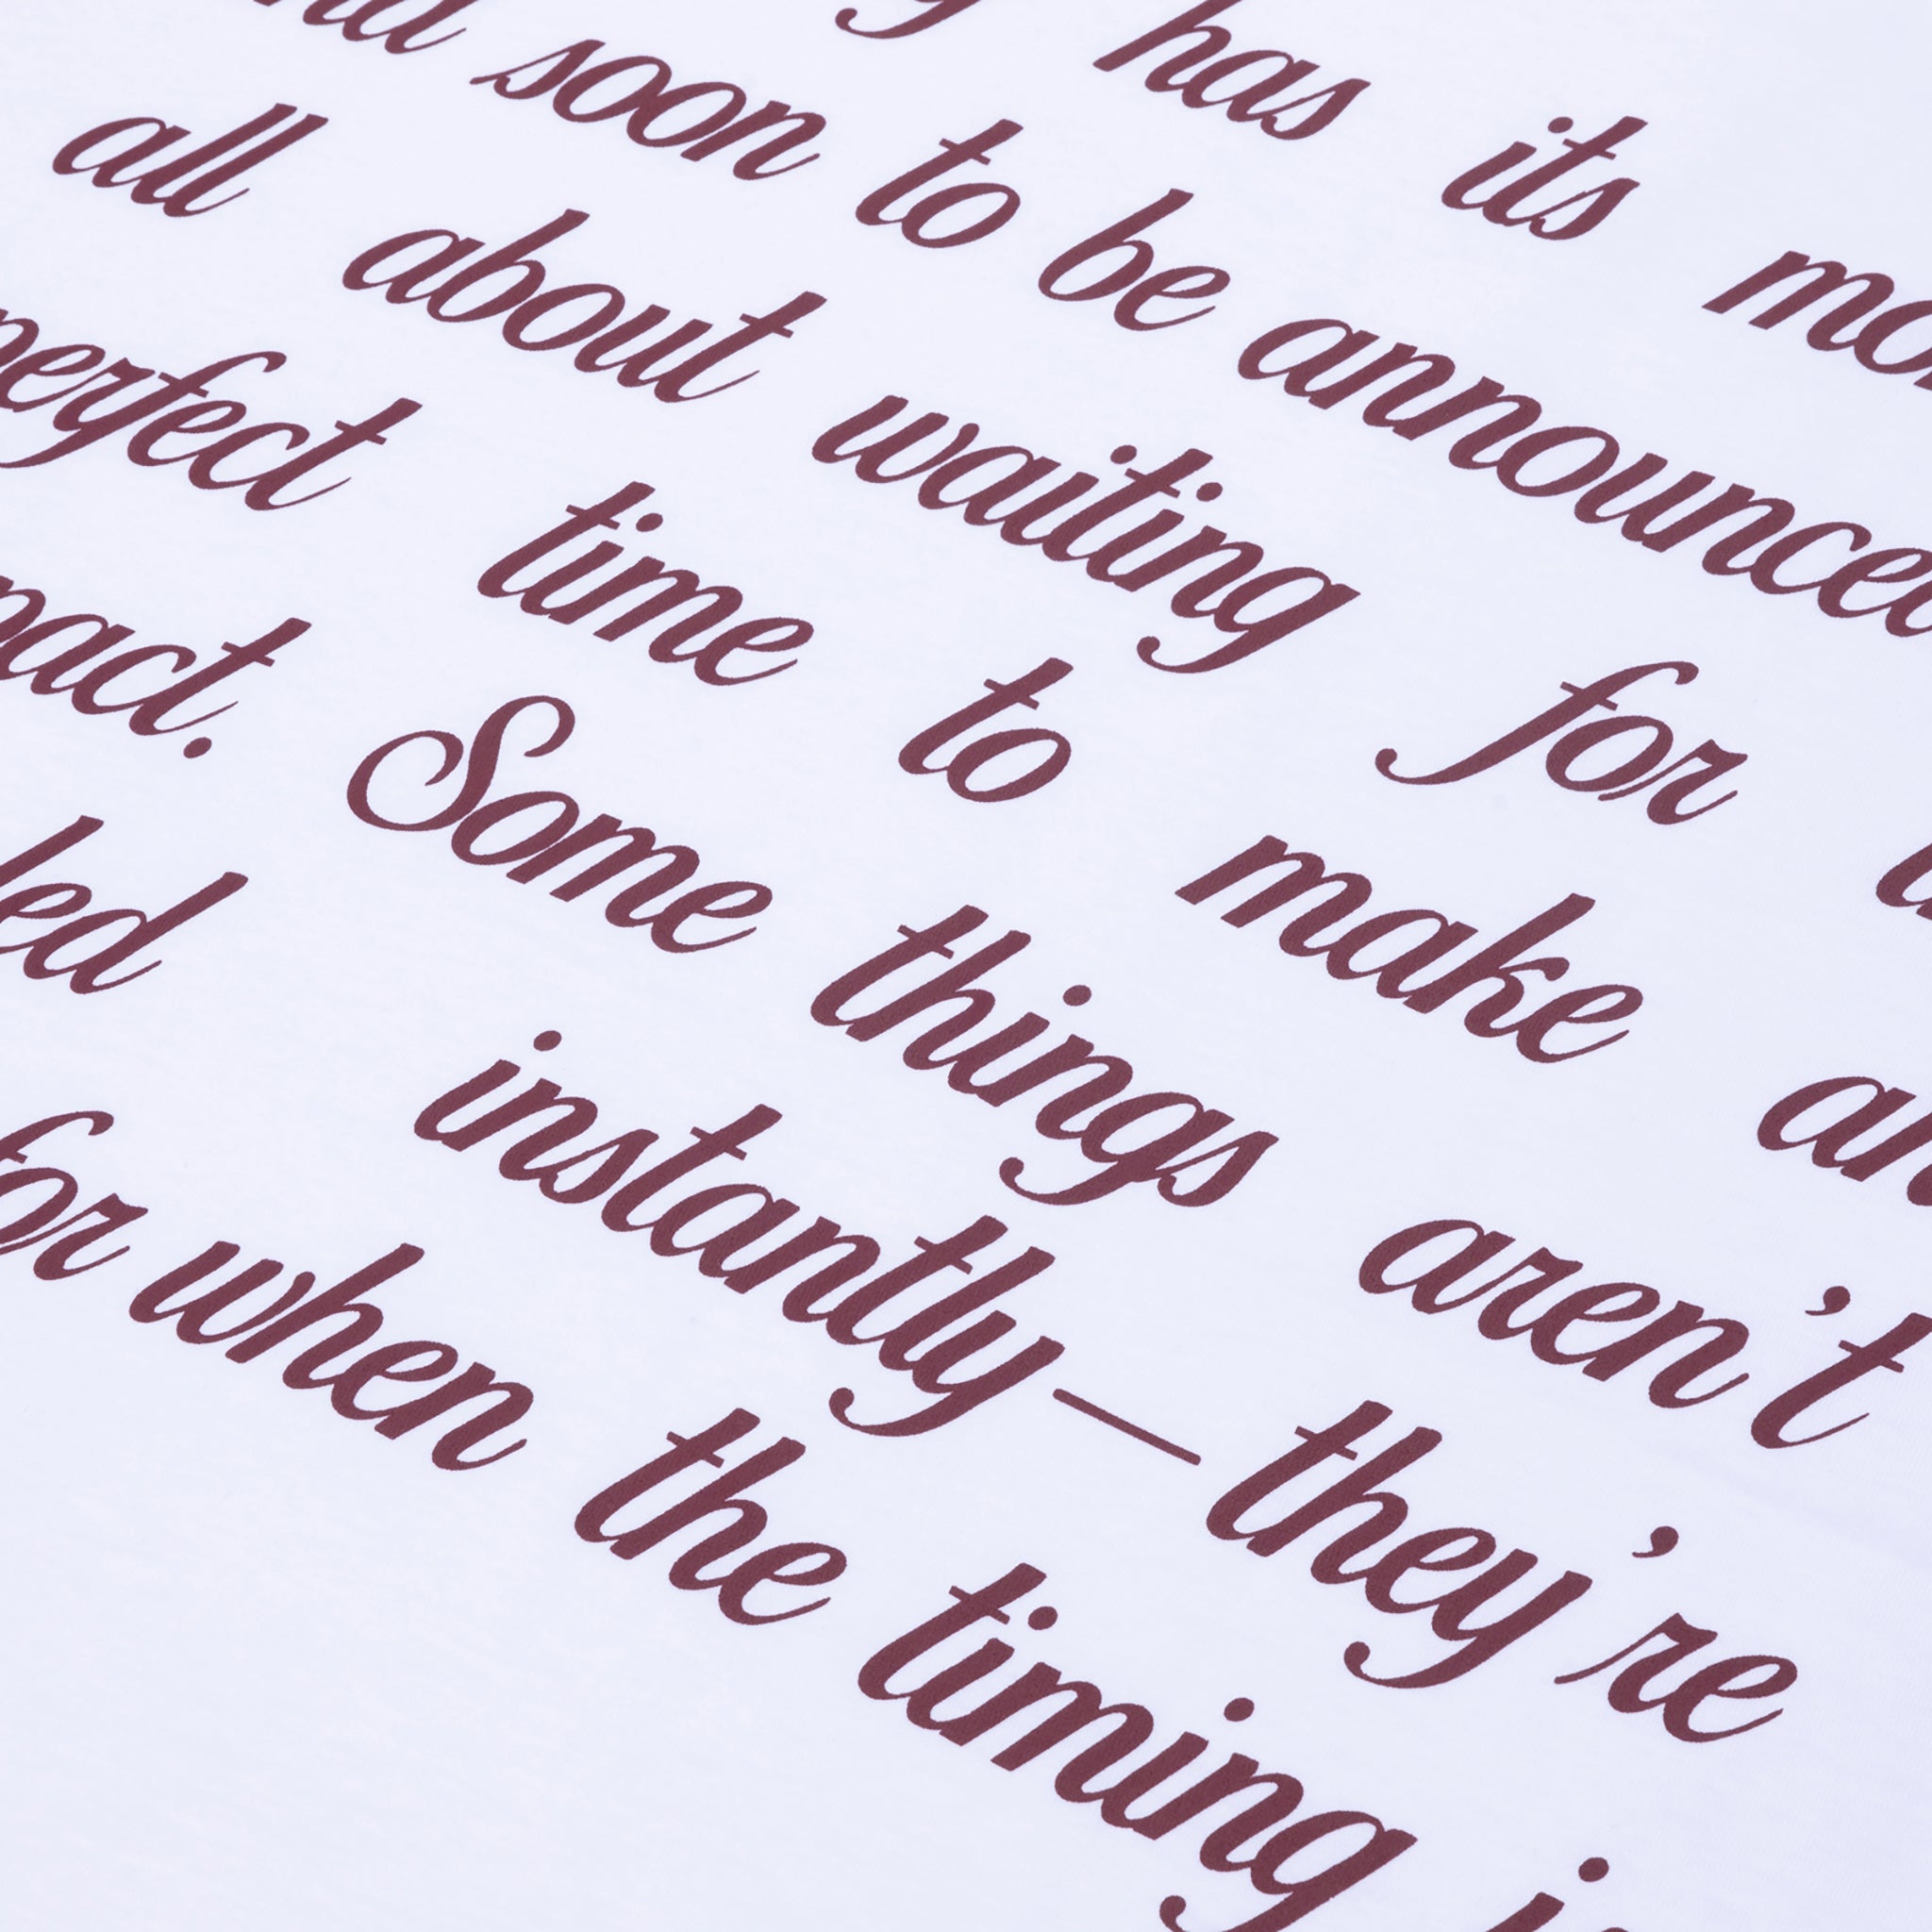 has its mo
and soon to be announced
all about waiting for
perfect time to make an
pact. Some things aren't
led instantly—they're
for when the timing i